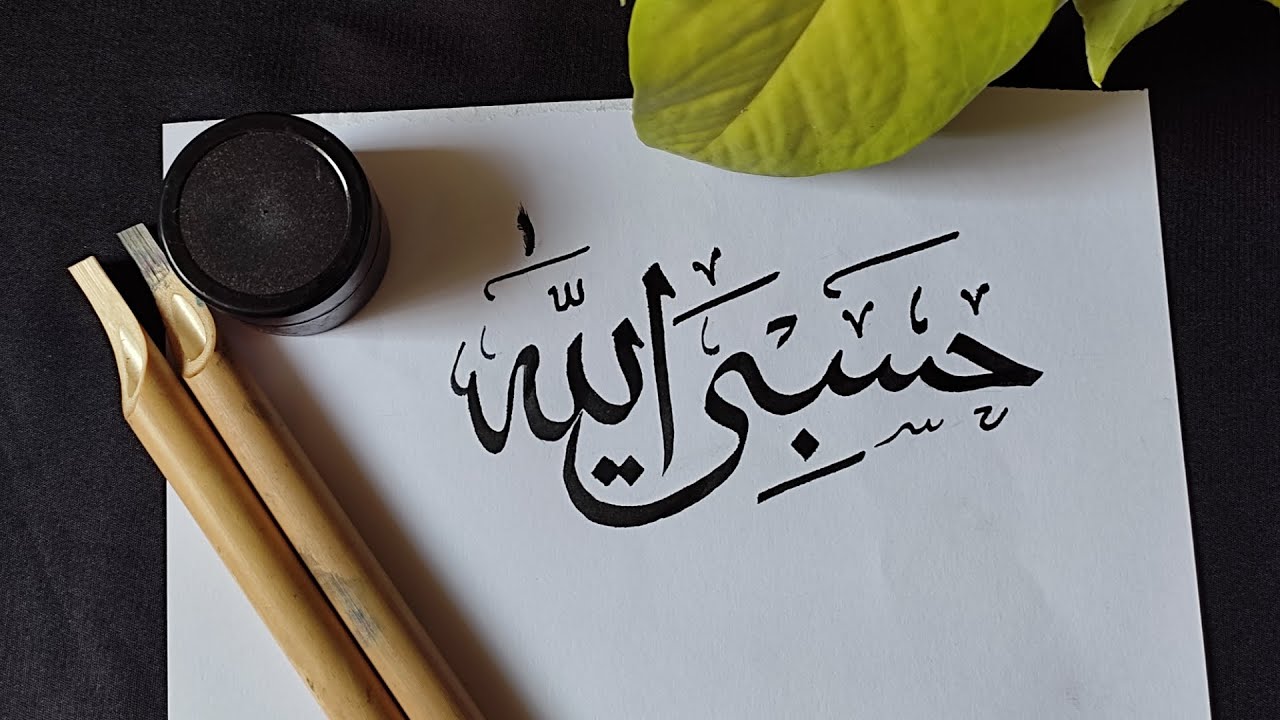 حَسْبِیَ اللّٰهُ